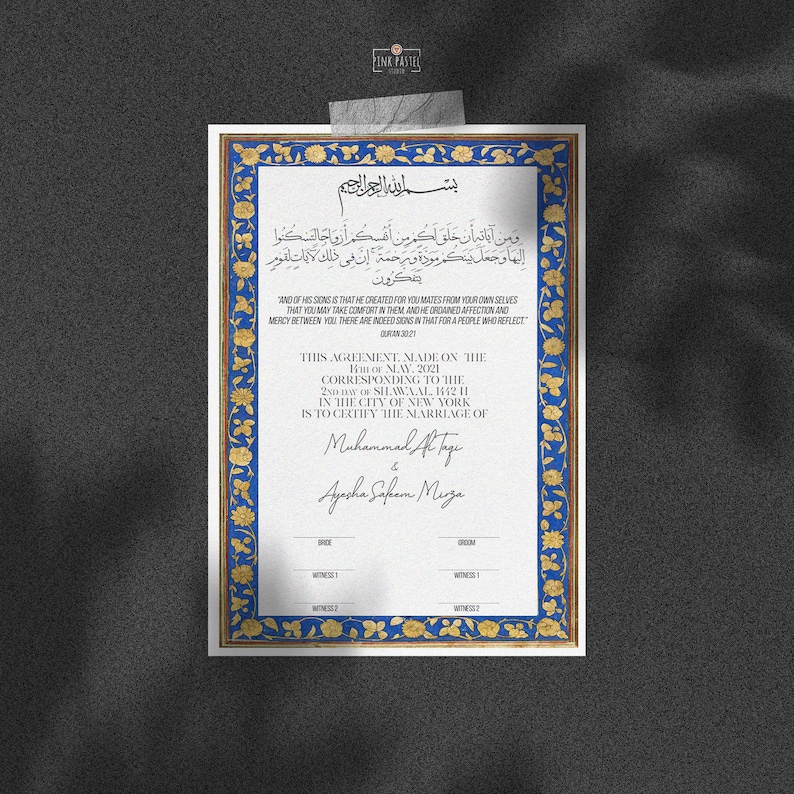 PINK PASTEL
STUDIO
بسم الله الرحمن الرحيم
وَمِنْ آيَاتِهِ أَنْ خَلَقَ لَكُم مِّنْ أَنفُسِكُمْ أَزْوَاجًا لِّتَسْكُنُوا
إِلَيْهَا وَجَعَلَ بَيْنَكُم مَّوَدَّةً وَرَحْمَةً ۚ إِنَّ فِي ذَٰلِكَ لَآيَاتٍ لِّقَوْمٍ
يَتَفَكَّرُونَ
"AND OF HIS SIGNS IS THAT HE CREATED FOR YOU MATES FROM YOUR OWN SELVES
THAT YOU MAY TAKE COMFORT IN THEM, AND HE ORDAINED AFFECTION AND
MERCY BETWEEN YOU. THERE ARE INDEED SIGNS IN THAT FOR A PEOPLE WHO REFLECT."
QUR'AN 30:21
THIS AGREEMENT, MADE ON THE
14TH OF MAY, 2021
CORRESPONDING TO THE
2ND DAY OF SHAWAAL, 1442 H
IN THE CITY OF NEW YORK
IS TO CERTIFY THE MARRIAGE OF
Muhammad Ali Taqi
&
Ayesha Saleem Mirza
BRIDE GROOM
WITNESS 1 WITNESS 1
WITNESS 2 WITNESS 2